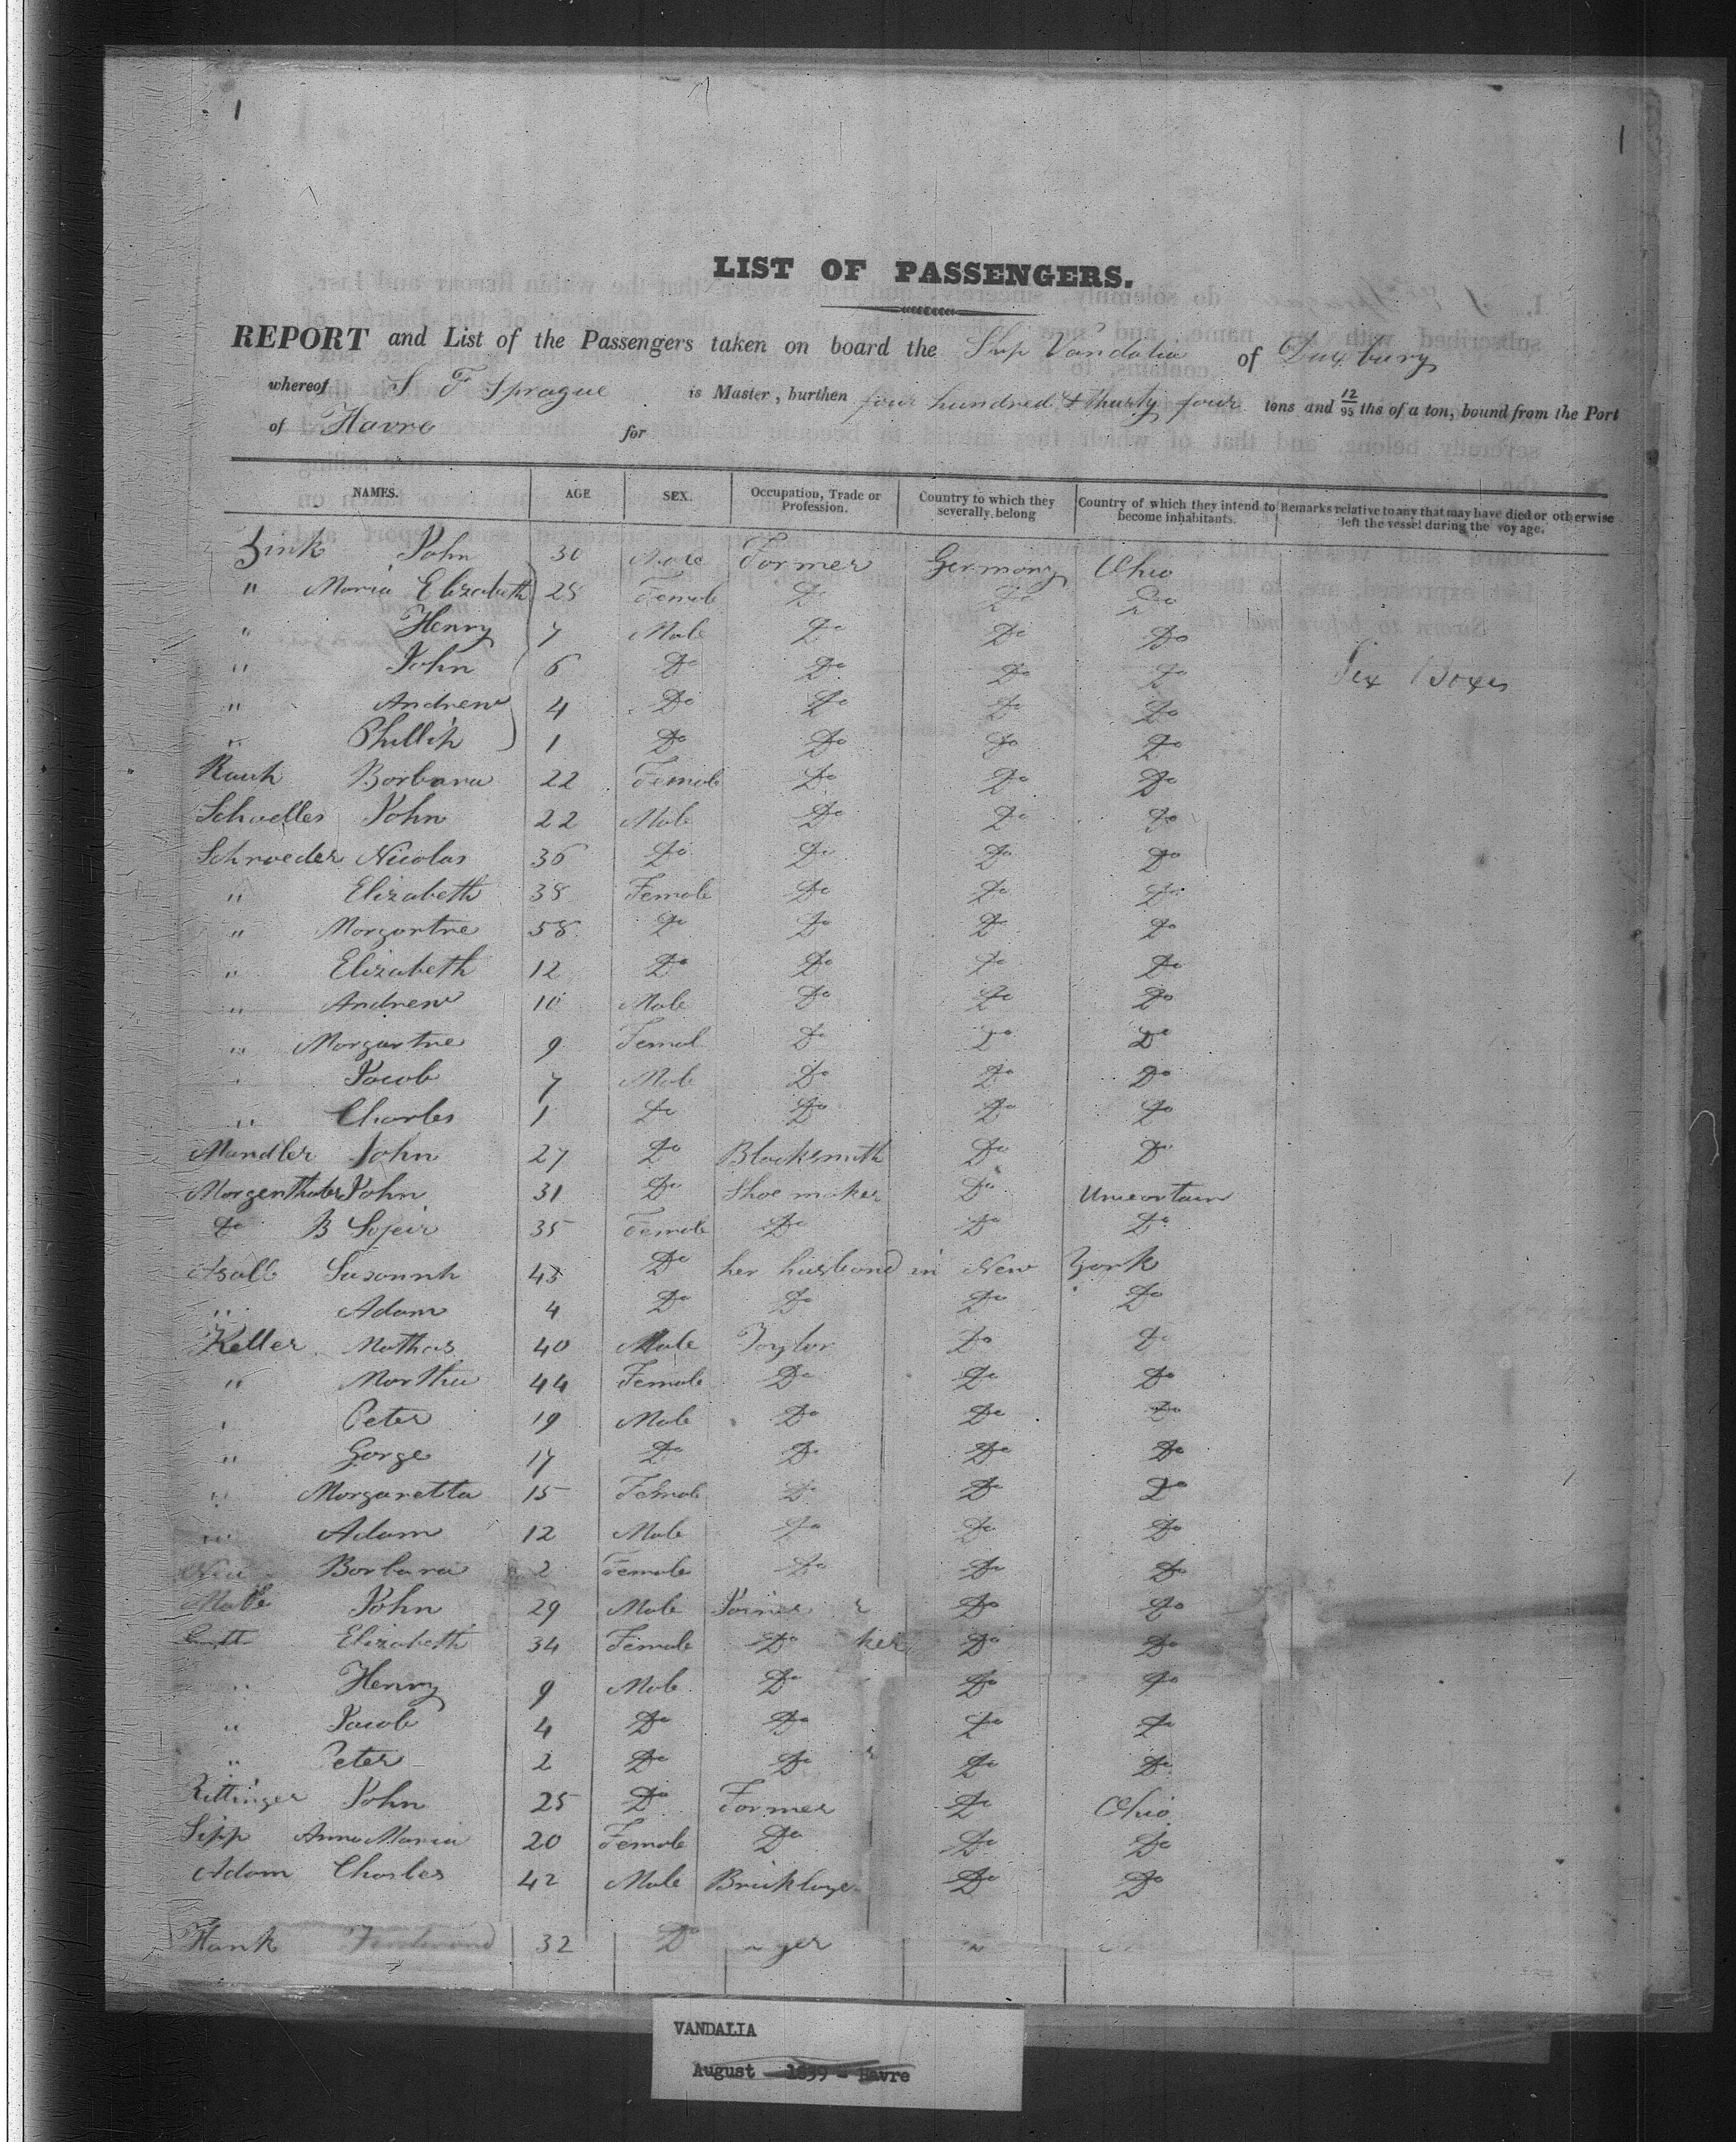 1
1
LIST OF PASSENGERS.
REPORT and List of the Passengers taken on board the Ship Vandalia of Duxbury
whereof S F Sprague is Master, burthen four hundred & thirty four tons and 12/95 ths of a ton, bound from the Port
of Havre for
NAMES. AGE SEX. Occupation, Trade or Profession. Country to which they severally belong Country of which they intend to become inhabitants. Remarks relative to any that may have died or otherwise left the vessel during the voyage.
Zink John 30 Male Farmer Germany Ohio
" Maria Elizabeth 28 Female Do Do Do
" Henry 7 Male Do Do Do
" John 6 Do Do Do Do Six Boxes
" Andrew 4 Do Do Do Do
" Phillip 1 Do Do Do Do
Rauh Barbara 22 Female Do Do Do
Schueller John 22 Male Do Do Do
Schroeder Nicolas 36 Do Do Do Do
" Elizabeth 38 Female Do Do Do
" Margartne 58 Do Do Do Do
" Elizabeth 12 Do Do Do Do
" Andrew 10 Male Do Do Do
" Margartne 9 Femal Do Do Do
" Jacob 7 Male Do Do Do
" Charles 1 Do Do Do Do
Mandler John 27 Do Blacksmith Do Do
Morgenthaler John 31 Do Shoe maker Do Uncertain
Do B 35 Female Do Do Do
Susannh 45 Do her husband in New York
" Adam 4 Do Do Do Do
Keller Mathas 40 Male Taylor Do Do
" Martha 44 Female Do Do Do
" Peter 19 Male Do Do Do
" Gorge 17 Do Do Do Do
" Margaretta 15 Female Do Do Do
" Adam 12 Male Do Do Do
Barbara 2 Female Do Do Do
John 29 Male Joiner Do Do
Elizabeth 34 Female Do ker Do Do
" Henry 9 Male Do Do Do
" Jacob 4 Do Do Do Do
" Peter 2 Do Do Do Do
Rittinger John 25 Do Farmer Do Ohio
Sipp Anna Maria 20 Female Do Do Do
Adam Charles 42 Male Bricklaye Do Do
Hank Ferdinand 32 Do yer
VANDALIA
August 1839 - Havre